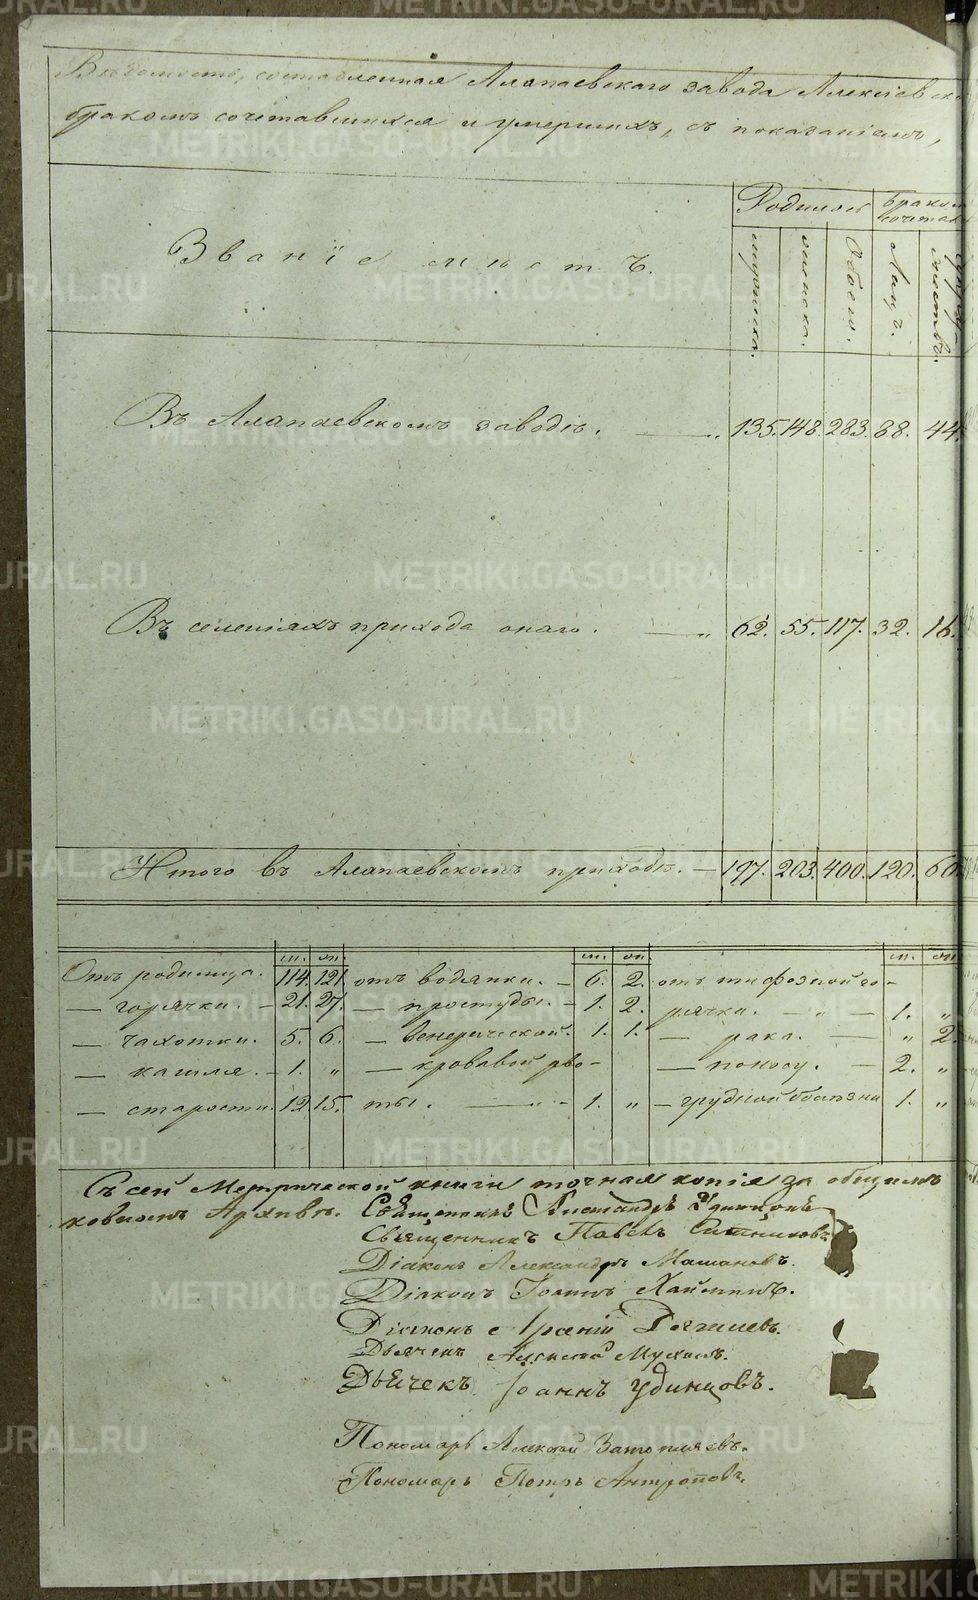 Вѣдомость, составленная Алапаевскаго завода Алексіевск
бракомъ сочетавшихся и умершихъ, съ показаніемъ,
Званіе мѣстъ.
Родилось
Браком сочетал
мужеска.
женска.
Обоего.
Лицъ.
супружествъ.
Въ Алапаевскомъ заводѣ. — „ 135. 148. 283. 88. 44.
Въ селеніяхъ прихода онаго. — „ 62. 55. 117. 32. 16.
Итого въ Алапаевскомъ приходѣ. — 197. 203. 400. 120. 60.
м. ж. м. ж. м. ж.
Отъ родимца. 114. 121. отъ водянки. — 6. 2. отъ тифозной го-
— горячки. — 21. 27. — простуды. — 1. 2. рячки. — „ — 1. „
— чахотки. 5. 6. — венерической. 1. 1. — рака. — „ 2.
— кашля. — 1. „ — кровавой рво- — поносу. — 2. „
— старости. 12. 15. ты. — „ — 1. „ — грудной болѣзни 1. „
Съ сей Метрической книги точная копія за общимъ
ковномъ Архивѣ. Священникъ Александръ Удинцовъ
Священникъ Павелъ Ситниковъ.
Діаконъ Александръ
Діаконъ Іоаннъ
Діаконъ Арсеній
Дьячекъ Алексѣй
Дьячекъ Іоаннъ Удинцовъ.
Пономарь Алексѣй Затопляевъ.
Пономарь Петръ Антроповъ.
METRIKI.GASO-URAL.RU